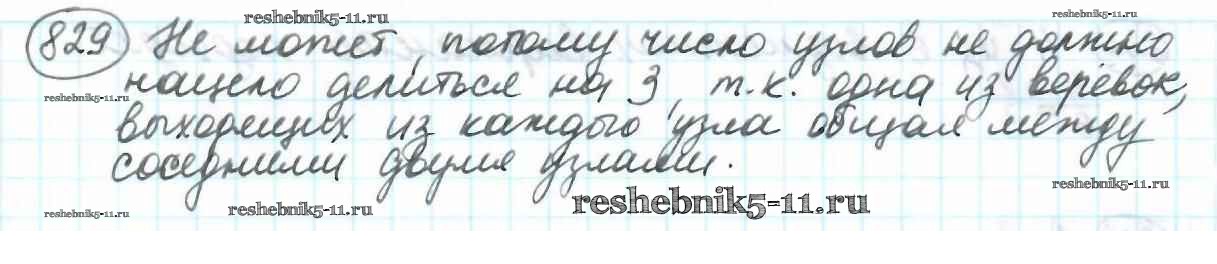 reshebnik5-11.ru
reshebnik5-11.ru
829 Не может, потому число узлов не должно
нацело делиться на 3, т.к. одна из верёвок,
reshebnik5-11.ru
выходящих из каждого узла общая между
соседними двумя узлами.
reshebnik5-11.ru
reshebnik5-11.ru
reshebnik5-11.ru
reshebnik5-11.ru